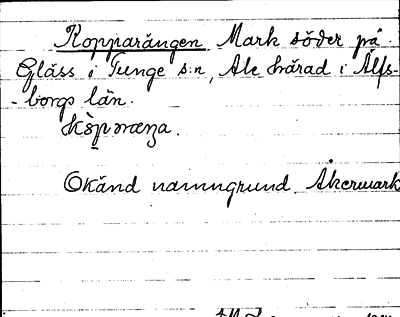 Kopparängen Mark söder på
Gläss i Tunge s:n, Ale härad i Älfs-
-borgs län.
Okänd namngrund. Åkermark